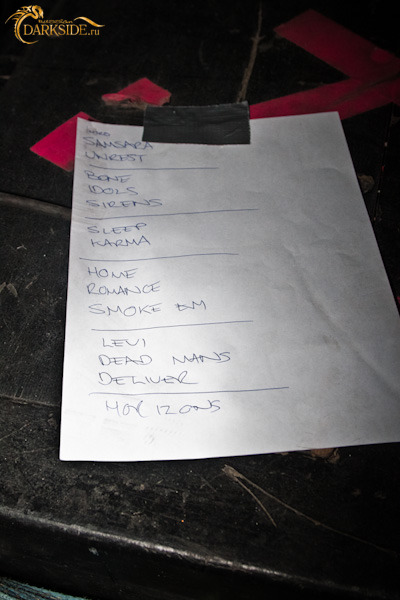 RUSSIAN
DARKSIDE.ru
INTRO
SAMSARA
UNREST
BONE
IDOLS
SIRENS
SLEEP
KARMA
HOME
ROMANCE
SMOKE EM
LEVI
DEAD MANS
DELIVER
HORIZONS